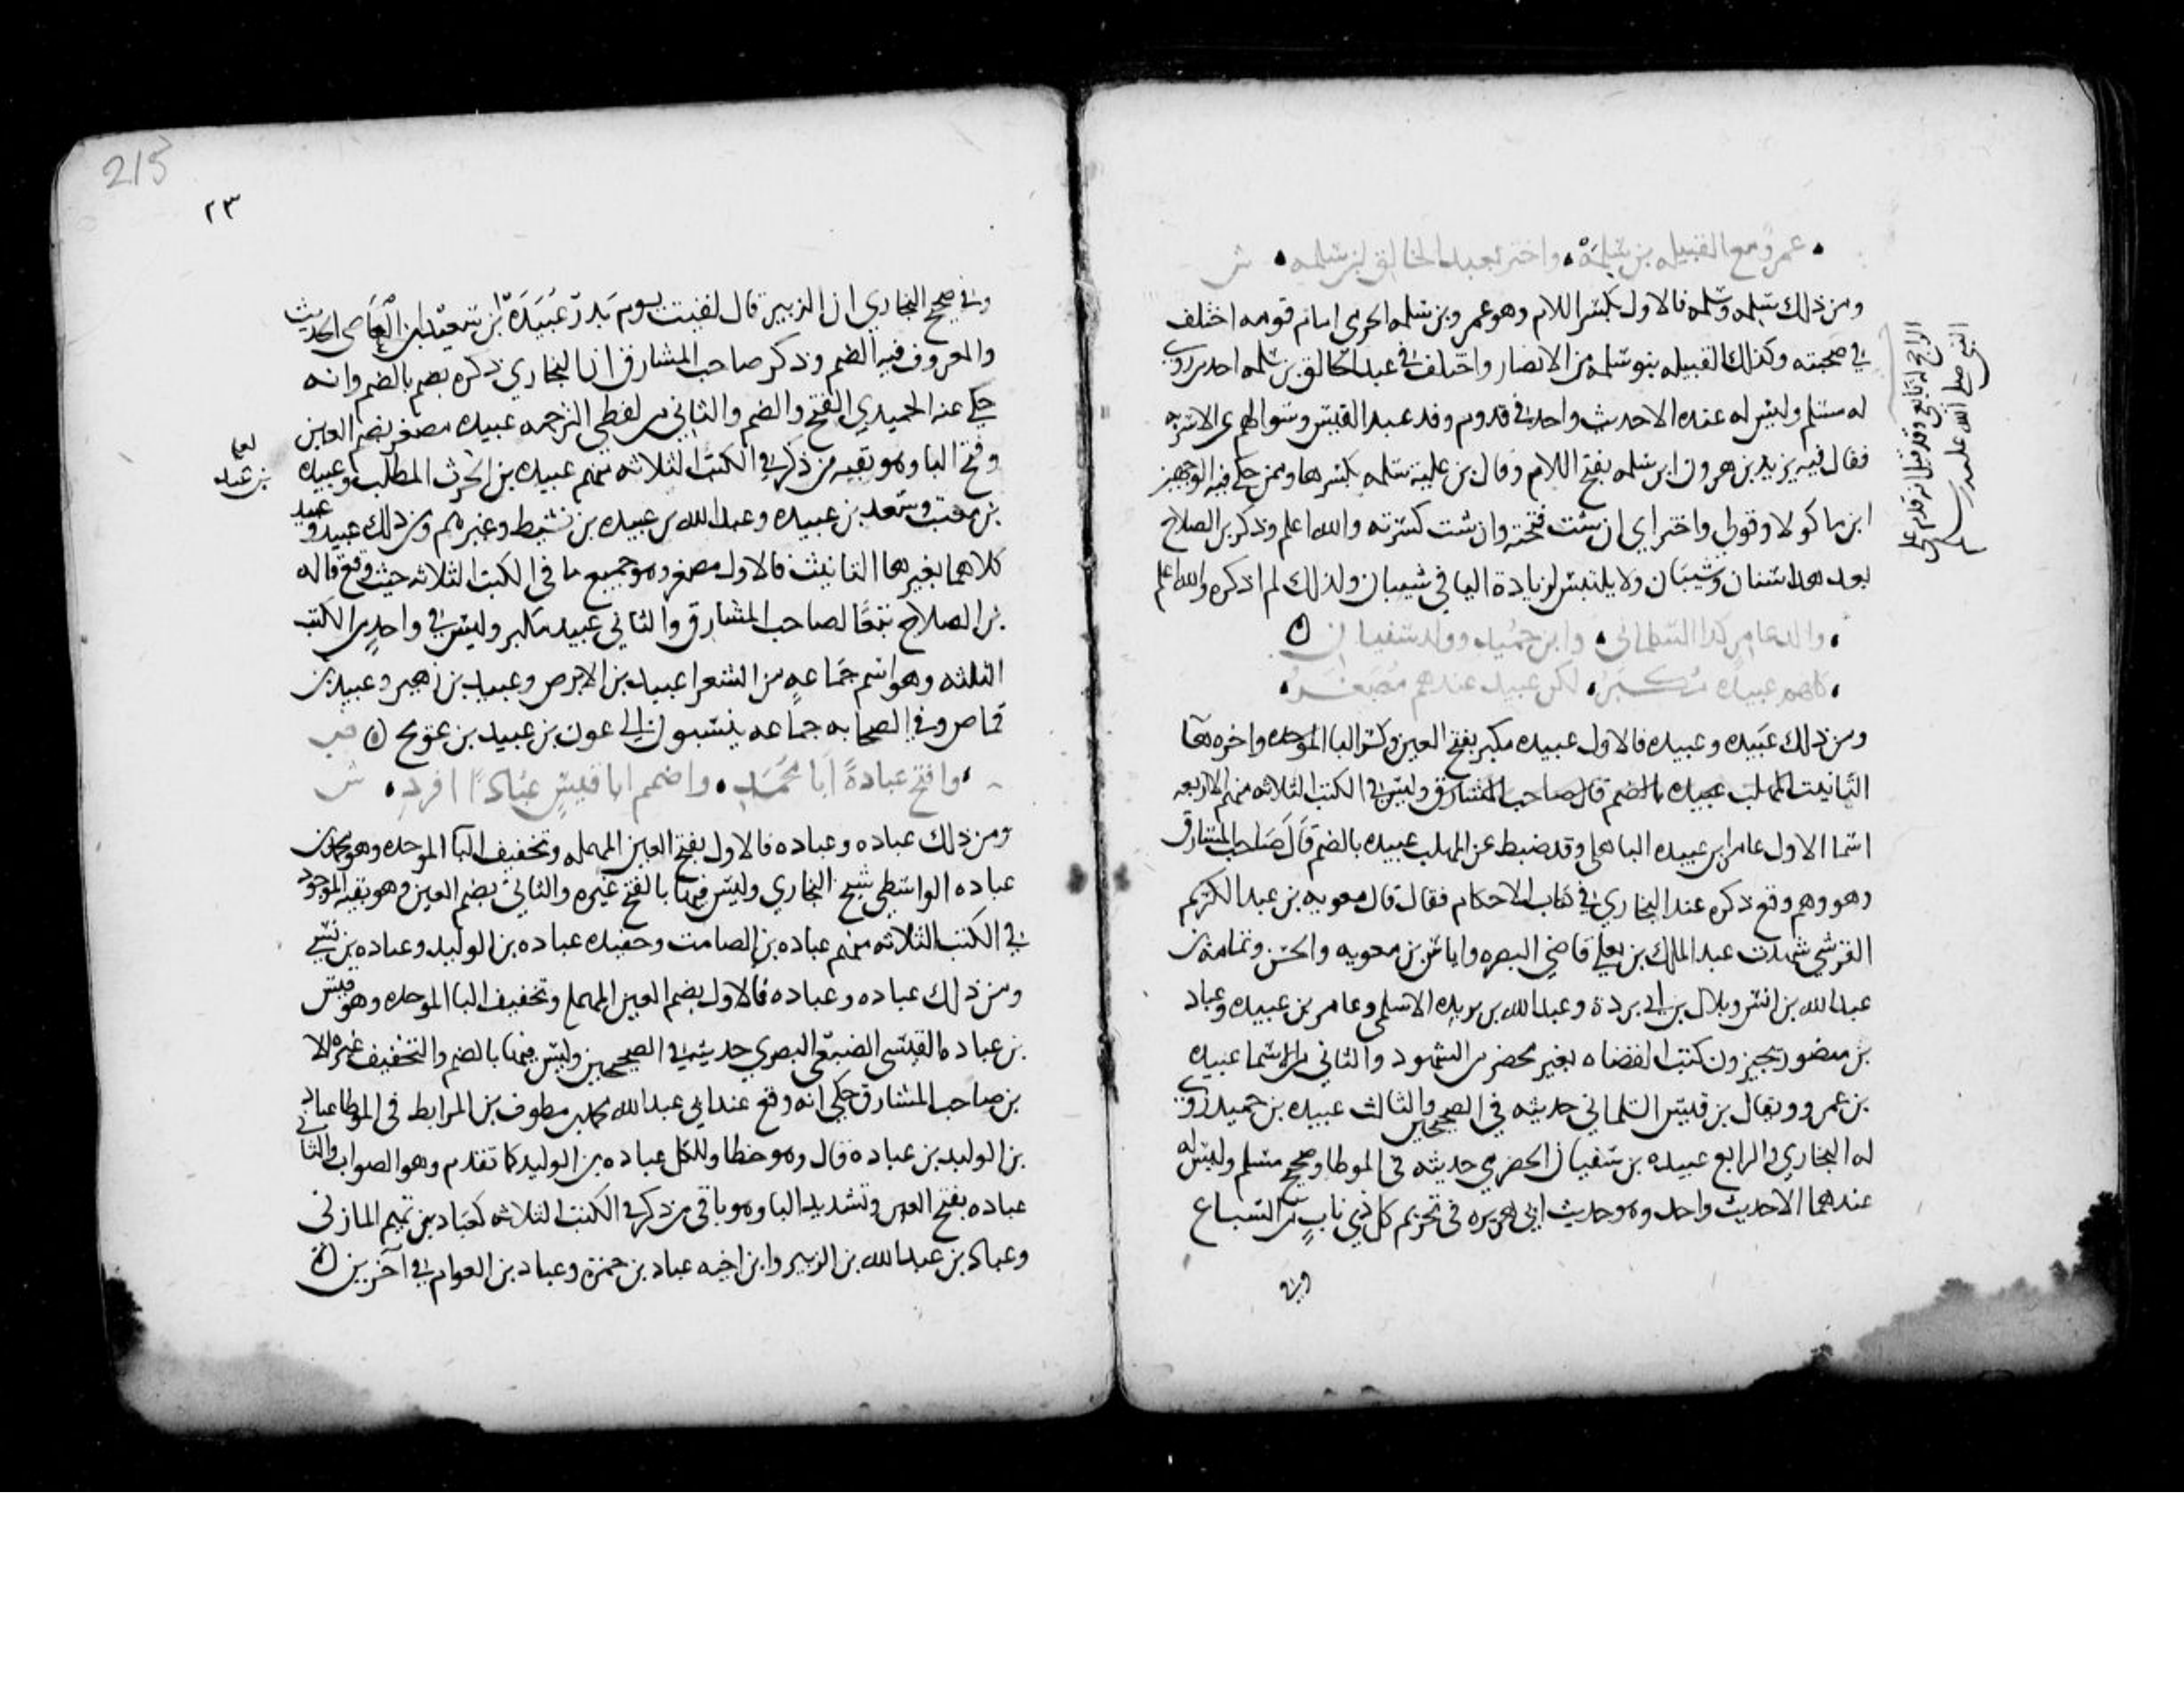 عمرو مع القبيله بن سلمه واختر بعبد الخالق بن سلمه ش
ومن ذلك سلمه وسلمه فالاول بكسر اللام وهو عمرو بن سلمه الجرمي امام قومه اختلف
في صحبته وكذلك القبيله بنو سلمه من الانصار واختلف في عبد الخالق بن سلمه احد من روى
له مسلم وليس له عنده الا حديث واحد في قدوم وفد عبد القيس وسوالهم عن الاشربه
فقال فيه يزيد بن هرون ابن سلمه بفتح اللام وقال بن عليه سلمه بكسرها وممن حكى فيه الوجهين
ابن ماكولا وقولي واختر اي ان شت فتحته وان شت كسرته والله اعلم وذكر بن الصلاح
بعد هذا سنان وشيبان ولا يلتبس لزيادة اليا في شيبان ولذلك لم اذكره والله اعلم
والد عامر كذا السلماني وابن حميد وولد سفيان
كلهم عبيده مكبر لكن عبيد عندهم مصغر
ومن ذلك عبيده وعبيده فالاول عبيده مكبر بفتح العين وكسر البا الموحده واخره هآ
التانيث المهلب عبيده بالضم قال صاحب المشارق وليس في الكتب الثلاثه منهم الا اربعه
اسما الاول عامر بن عبيده الباهلي وقد ضبط عن المهلب عبيده بالضم قال صاحب المشارق
وهو وهم وقع ذكره عند البخاري في كتاب الاحكام فقال قال معويه بن عبد الكريم
القرشي شهدت عبد الملك بن يعلي قاضي البصره واياس بن معويه والحسن وثمامة بن
عبد الله بن انس وبلال بن ابي بردة وعبد الله بن بريده الاسلمي وعامر بن عبيده وعباد
بن منصور يجيزون كتب القضاه بغير محضر من الشهود والثاني من الاسما عبيده
بن عمرو ويقال بن قيس السلماني حديثه في الصحيحين والثالث عبيده بن حميد روى
له البخاري والرابع عبيده بن سفيان الحضرمي حديثه في الموطا وصحيح مسلم وليس له
عندهما الا حديث واحد وهو حديث ابي هريره في تحريم كل ذي ناب من السباع
وفي
الراجح انه تابعي وقد قيل انه قدم على
النبي صلى الله عليه وسلم
٢٣
215
وفي صحيح البخاري ان الزبير قال لقيت يوم بدر عبيدة بن سعيد ابن العاصي الحديث
والمعروف فيه الضم وذكر صاحب المشارق ان البخاري ذكره بضم بالضم وانه
حكي عنه الحميدي الفتح والضم والثاني من لفظي الترجمه عبيده مصغر بضم العين
وفتح البا وهو بقيه من ذكر في الكتب الثلاثه منهم عبيده بن الحرث المطلب وعبيده
بن معتب وسعد بن عبيده وعبد الله بن عبيده بن نشيط وغيرهم ومن ذلك عبيد وعبيد
كلاهما بغير ها التانيث فالاول مصغر وهو جميع ما في الكتب الثلاثه حيث وقع قاله
بن الصلاح تبعًا لصاحب المشارق والثاني عبيد مكبر وليس في واحد من الكتب
الثلثه وهو اسم جماعه من الشعرا عبيد بن الابرص وعبيد بن زهير وعبيد بن
قماص وفي الصحابه جماعه ينسبون الى عون بن عبيد بن عويج
وافتح عبادةً ابا محمد واضمم ابا قيس عبادًا افرد ش
ومن ذلك عباده وعباده فالاول بفتح العين المهمله وتخفيف البآ الموحده وهو محمد بن
عباده الواسطي شيخ البخاري وليس فيها بالفتح غيره والثاني بضم العين وهو بقيه الموجود
في الكتب الثلاثه منهم عباده بن الصامت وحفيده عباده بن الوليد وعباده بن نسي
ومن ذلك عباده وعباده فالاول بضم العين المهمله وتخفيف البا الموحده وهو قيس
بن عباده القيسي الضبعي البصري حديثه في الصحيحين وليس فيها بالضم والتخفيف غيره الا
بن صاحب المشارق حكي انه وقع عند ابي عبد الله محمد بن مطرف بن المرابط في الموطا عباد
بن الوليد بن عباده قال وهو خطا وللكل عباده بن الوليد كما تقدم وهو الصواب والثاني
عباده بفتح العين وتشديد البا وهو باقي من ذكر في الكتب الثلاثه كعباد بن تميم المازني
وعباد بن عبد الله بن الزبير وابن اخيه عباد بن حمزه وعباد بن العوام في آخرين